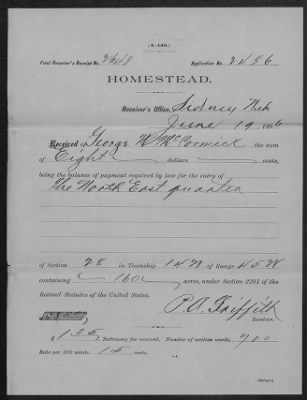 (4—140.)
Final Receiver's Receipt No. 2648 Application No. 2486
HOMESTEAD.
Receiver's Office, Sidney Neb
June 19, 1886
Received of George W. McCormick the sum
of Eight dollars cents,
being the balance of payment required by law for the entry of
The North East quarter
of Section 28 in Township 14 N of Range 45 W
containing 160 acres, under Section 2291 of the
Revised Statutes of the United States.
Receiver.
$ Testimony fee received. Number of written words, 700
Rate per 100 words 15 cents.